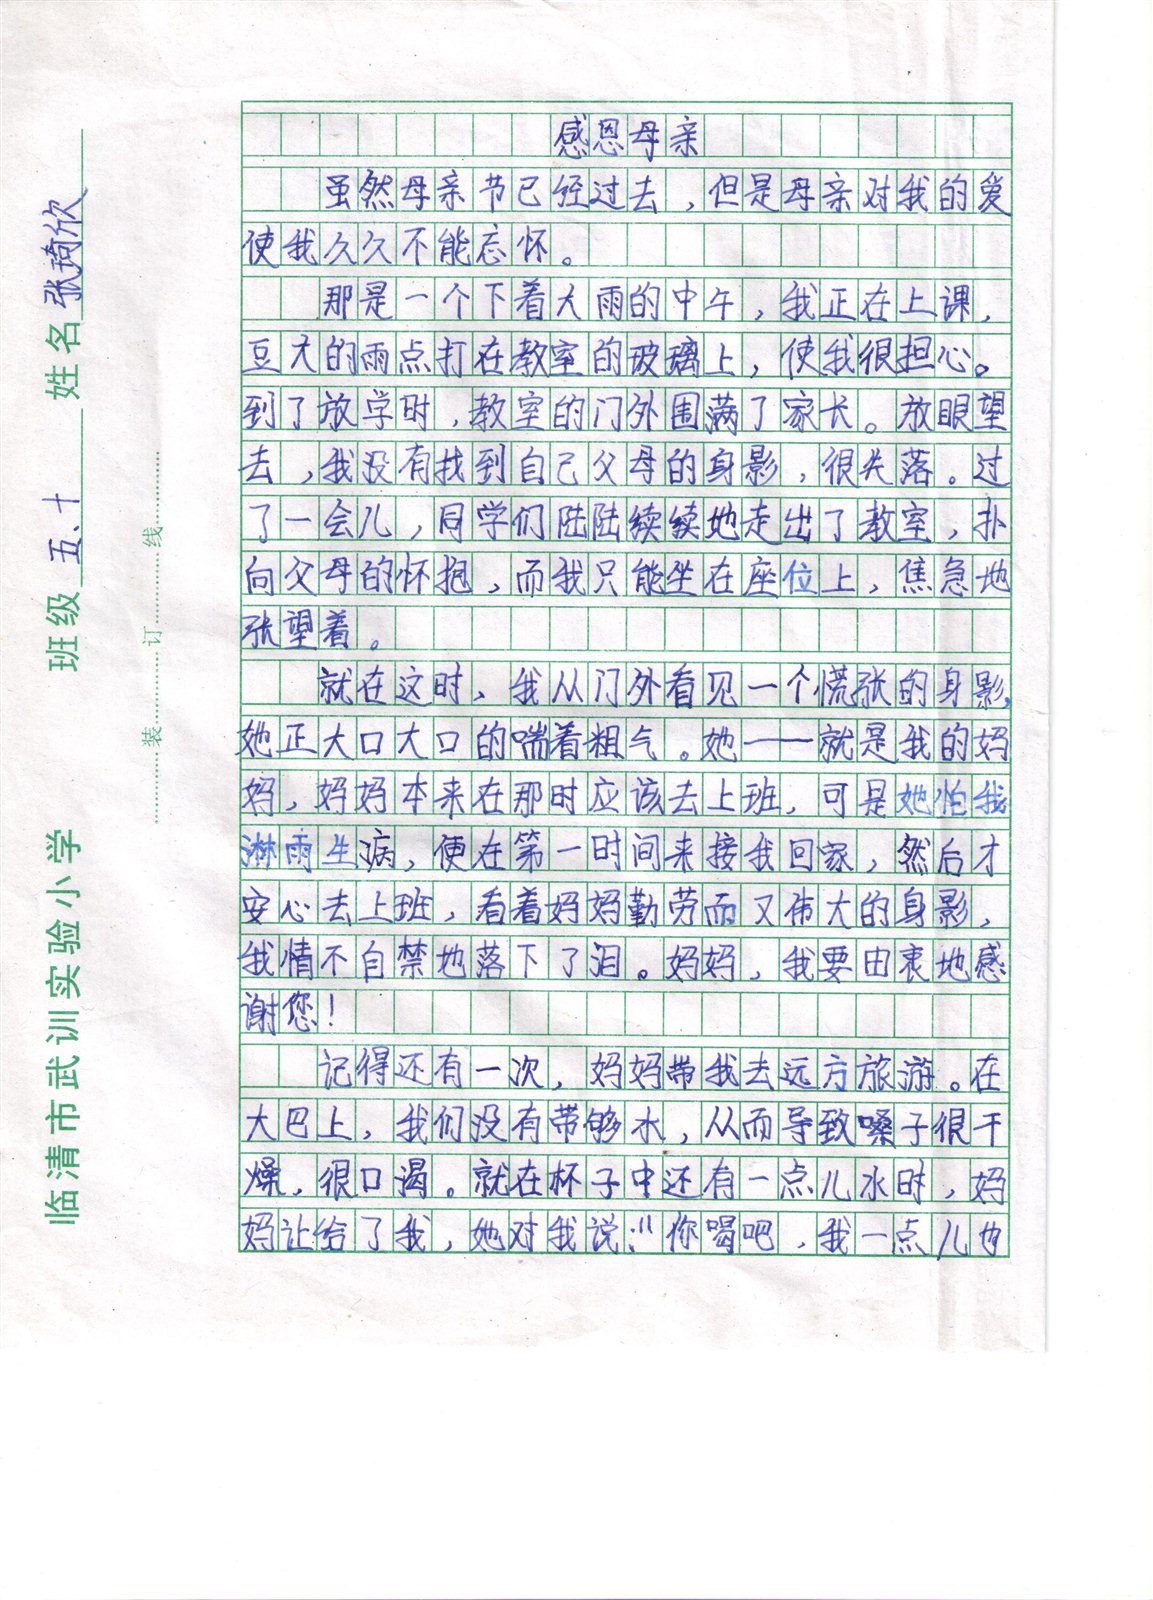 临清市武训实验小学 班级 五、十 姓名 张琦欣
装 订 线
感恩母亲
虽然母亲节已经过去，但是母亲对我的爱
使我久久不能忘怀。
那是一个下着大雨的中午，我正在上课，
豆大的雨点打在教室的玻璃上，使我很担心。
到了放学时，教室的门外围满了家长。放眼望
去，我没有找到自己父母的身影，很失落。过
了一会儿，同学们陆陆续续她走出了教室，扑
向父母的怀抱，而我只能坐在座位上，焦急地
张望着。
就在这时，我从门外看见一个慌张的身影，
她正大口大口的喘着粗气。她——就是我的妈
妈，妈妈本来在那时应该去上班，可是她怕我
淋雨生病，便在第一时间来接我回家，然后才
安心去上班，看着妈妈勤劳而又伟大的身影，
我情不自禁地落下了泪。妈妈，我要由衷地感
谢您！
记得还有一次，妈妈带我去远方旅游。在
大巴上，我们没有带够水，从而导致嗓子很干
燥，很口渴。就在杯子中还有一点儿水时，妈
妈让给了我，她对我说：“你喝吧，我一点儿也